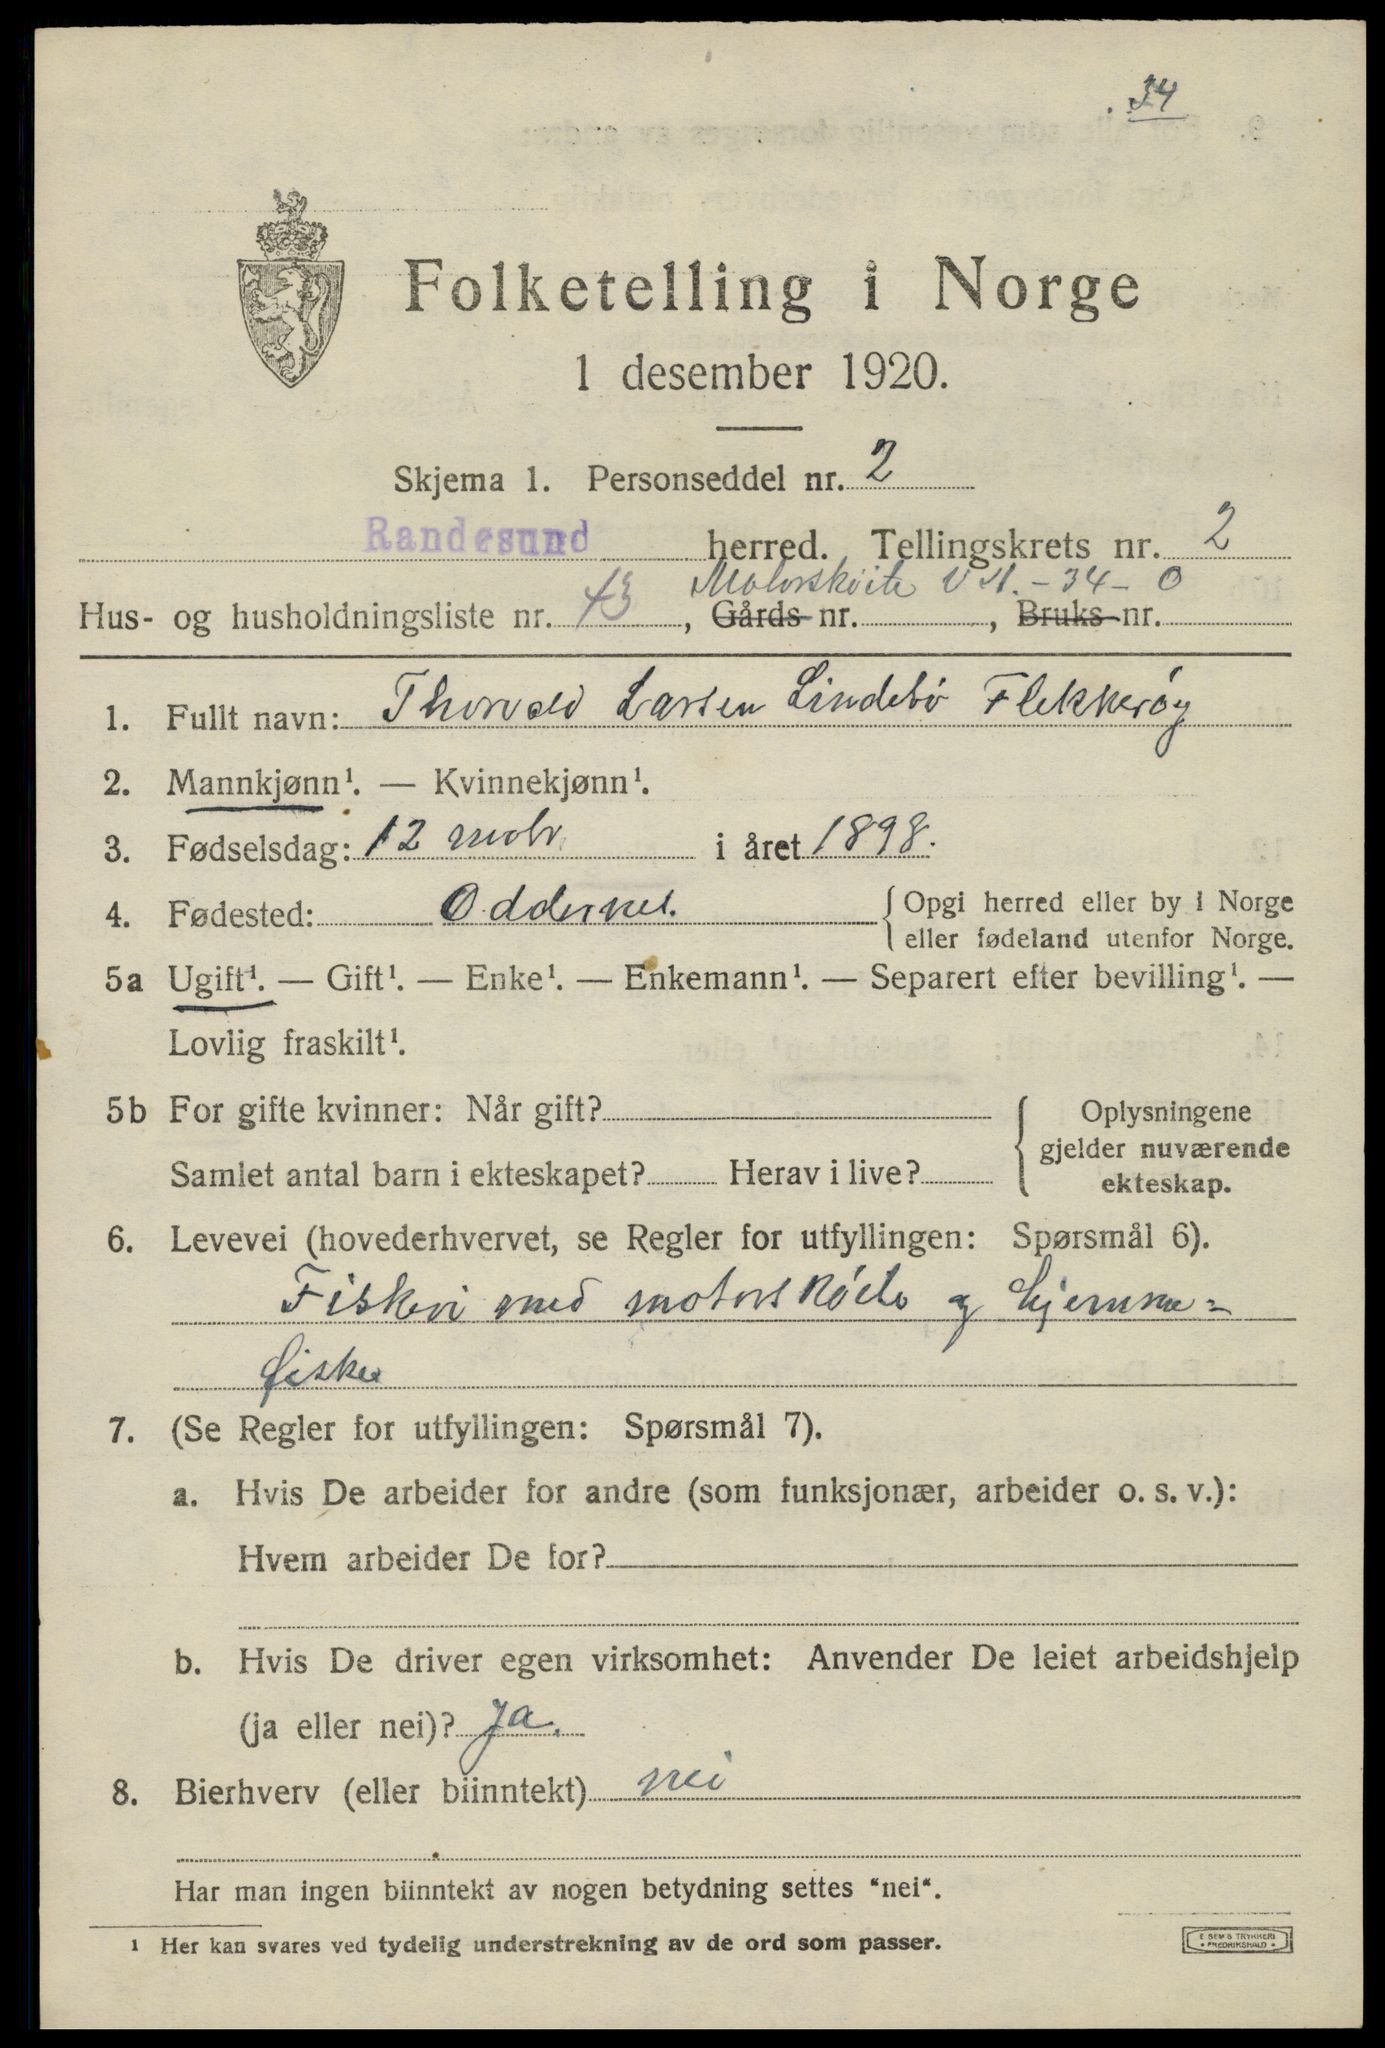 34
Folketelling i Norge
1 desember 1920.
Skjema 1. Personseddel nr. 2
Randesund herred. Tellingskrets nr. 2
Motorskøite V.A. - 34 - O
Hus- og husholdningsliste nr. 43, Gårds nr. , Bruks nr.
1. Fullt navn: Thorvald Larsen Lindebø Flekkerøy
2. Mannkjønn¹. — Kvinnekjønn¹.
3. Fødselsdag: 12 i året 1898.
4. Fødested: Oddernes. { Opgi herred eller by i Norge
eller fødeland utenfor Norge.
5a Ugift¹. — Gift¹. — Enke¹. — Enkemann¹. — Separert efter bevilling¹. —
Lovlig fraskilt¹.
5b For gifte kvinner: Når gift? { Oplysningene
gjelder nuværende
Samlet antal barn i ekteskapet? Herav i live? ekteskap.
6. Levevei (hovederhvervet, se Regler for utfyllingen: Spørsmål 6).
Fiskeri med motorskøite og hjemme=
fiske
7. (Se Regler for utfyllingen: Spørsmål 7).
a. Hvis De arbeider for andre (som funksjonær, arbeider o. s. v.):
Hvem arbeider De for?
b. Hvis De driver egen virksomhet: Anvender De leiet arbeidshjelp
(ja eller nei)? ja.
8. Bierhverv (eller biinntekt) nei
Har man ingen biinntekt av nogen betydning settes "nei".
¹ Her kan svares ved tydelig understrekning av de ord som passer.
E SEM'S TRYKKERI
FREDRIKSHALD